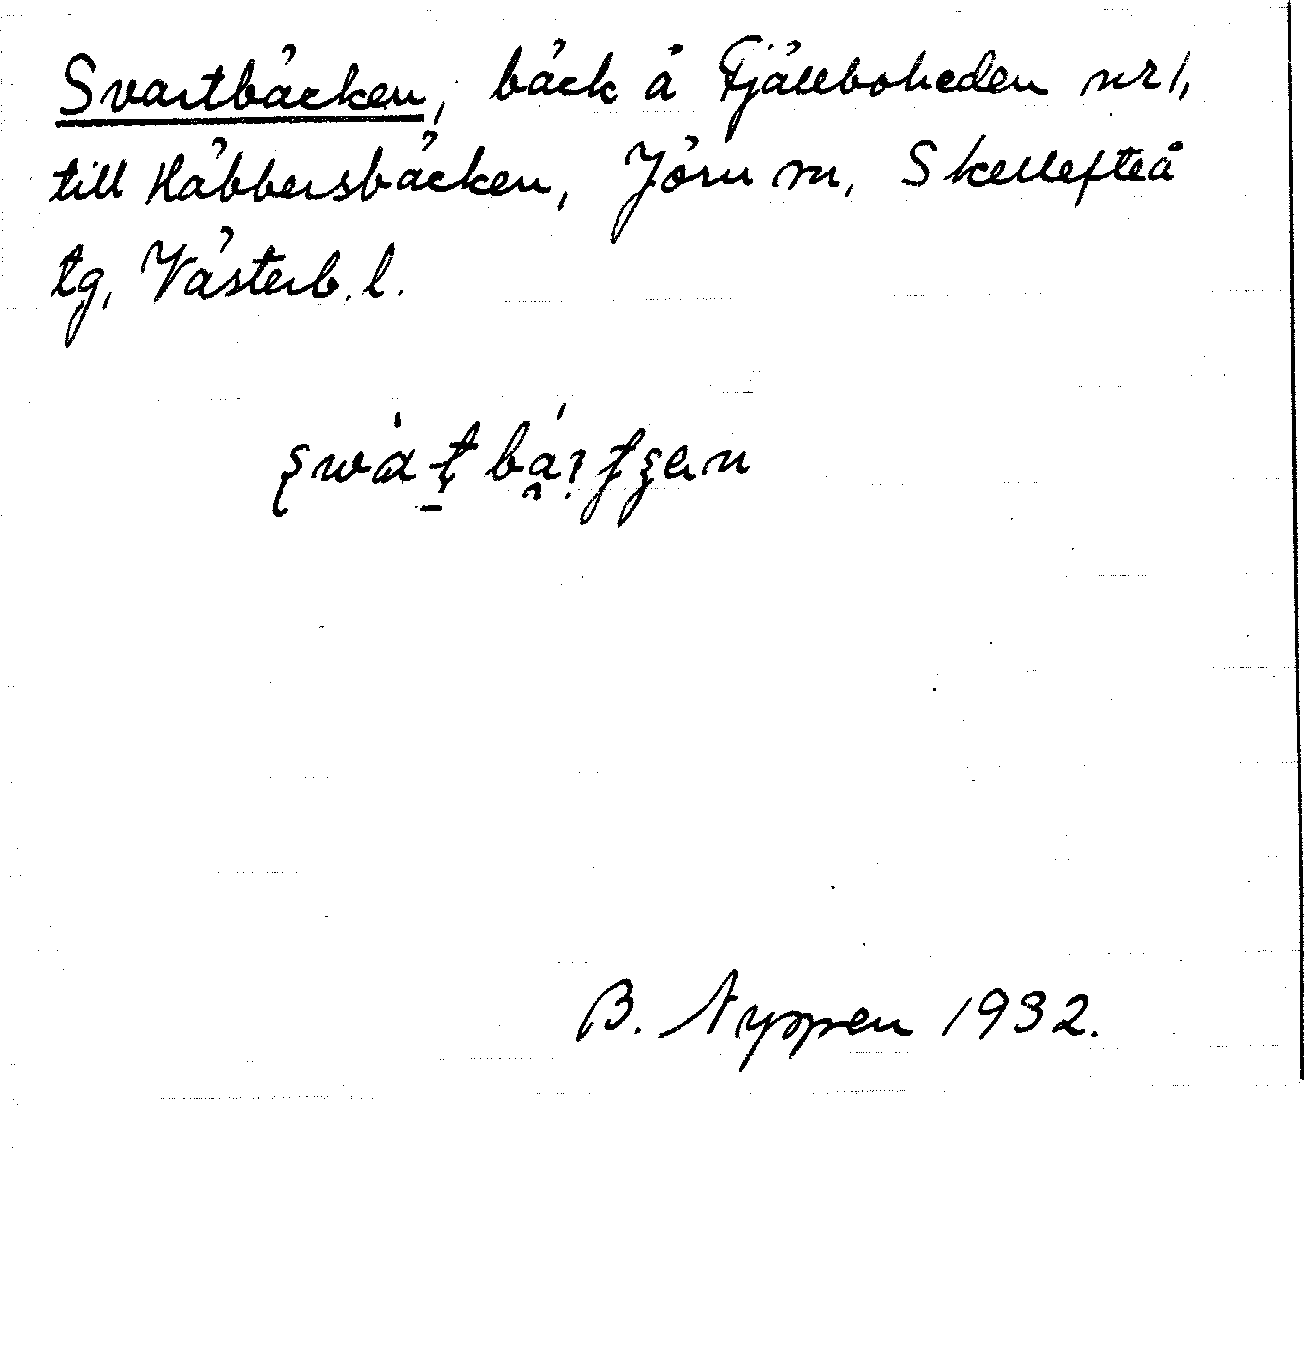 Svartbäcken, bäck å Fjällboheden nr 1,
till Häbbersbäcken, Jörn sn, Skellefteå
tg, Västerb. l.
B. Nyppen 1932.